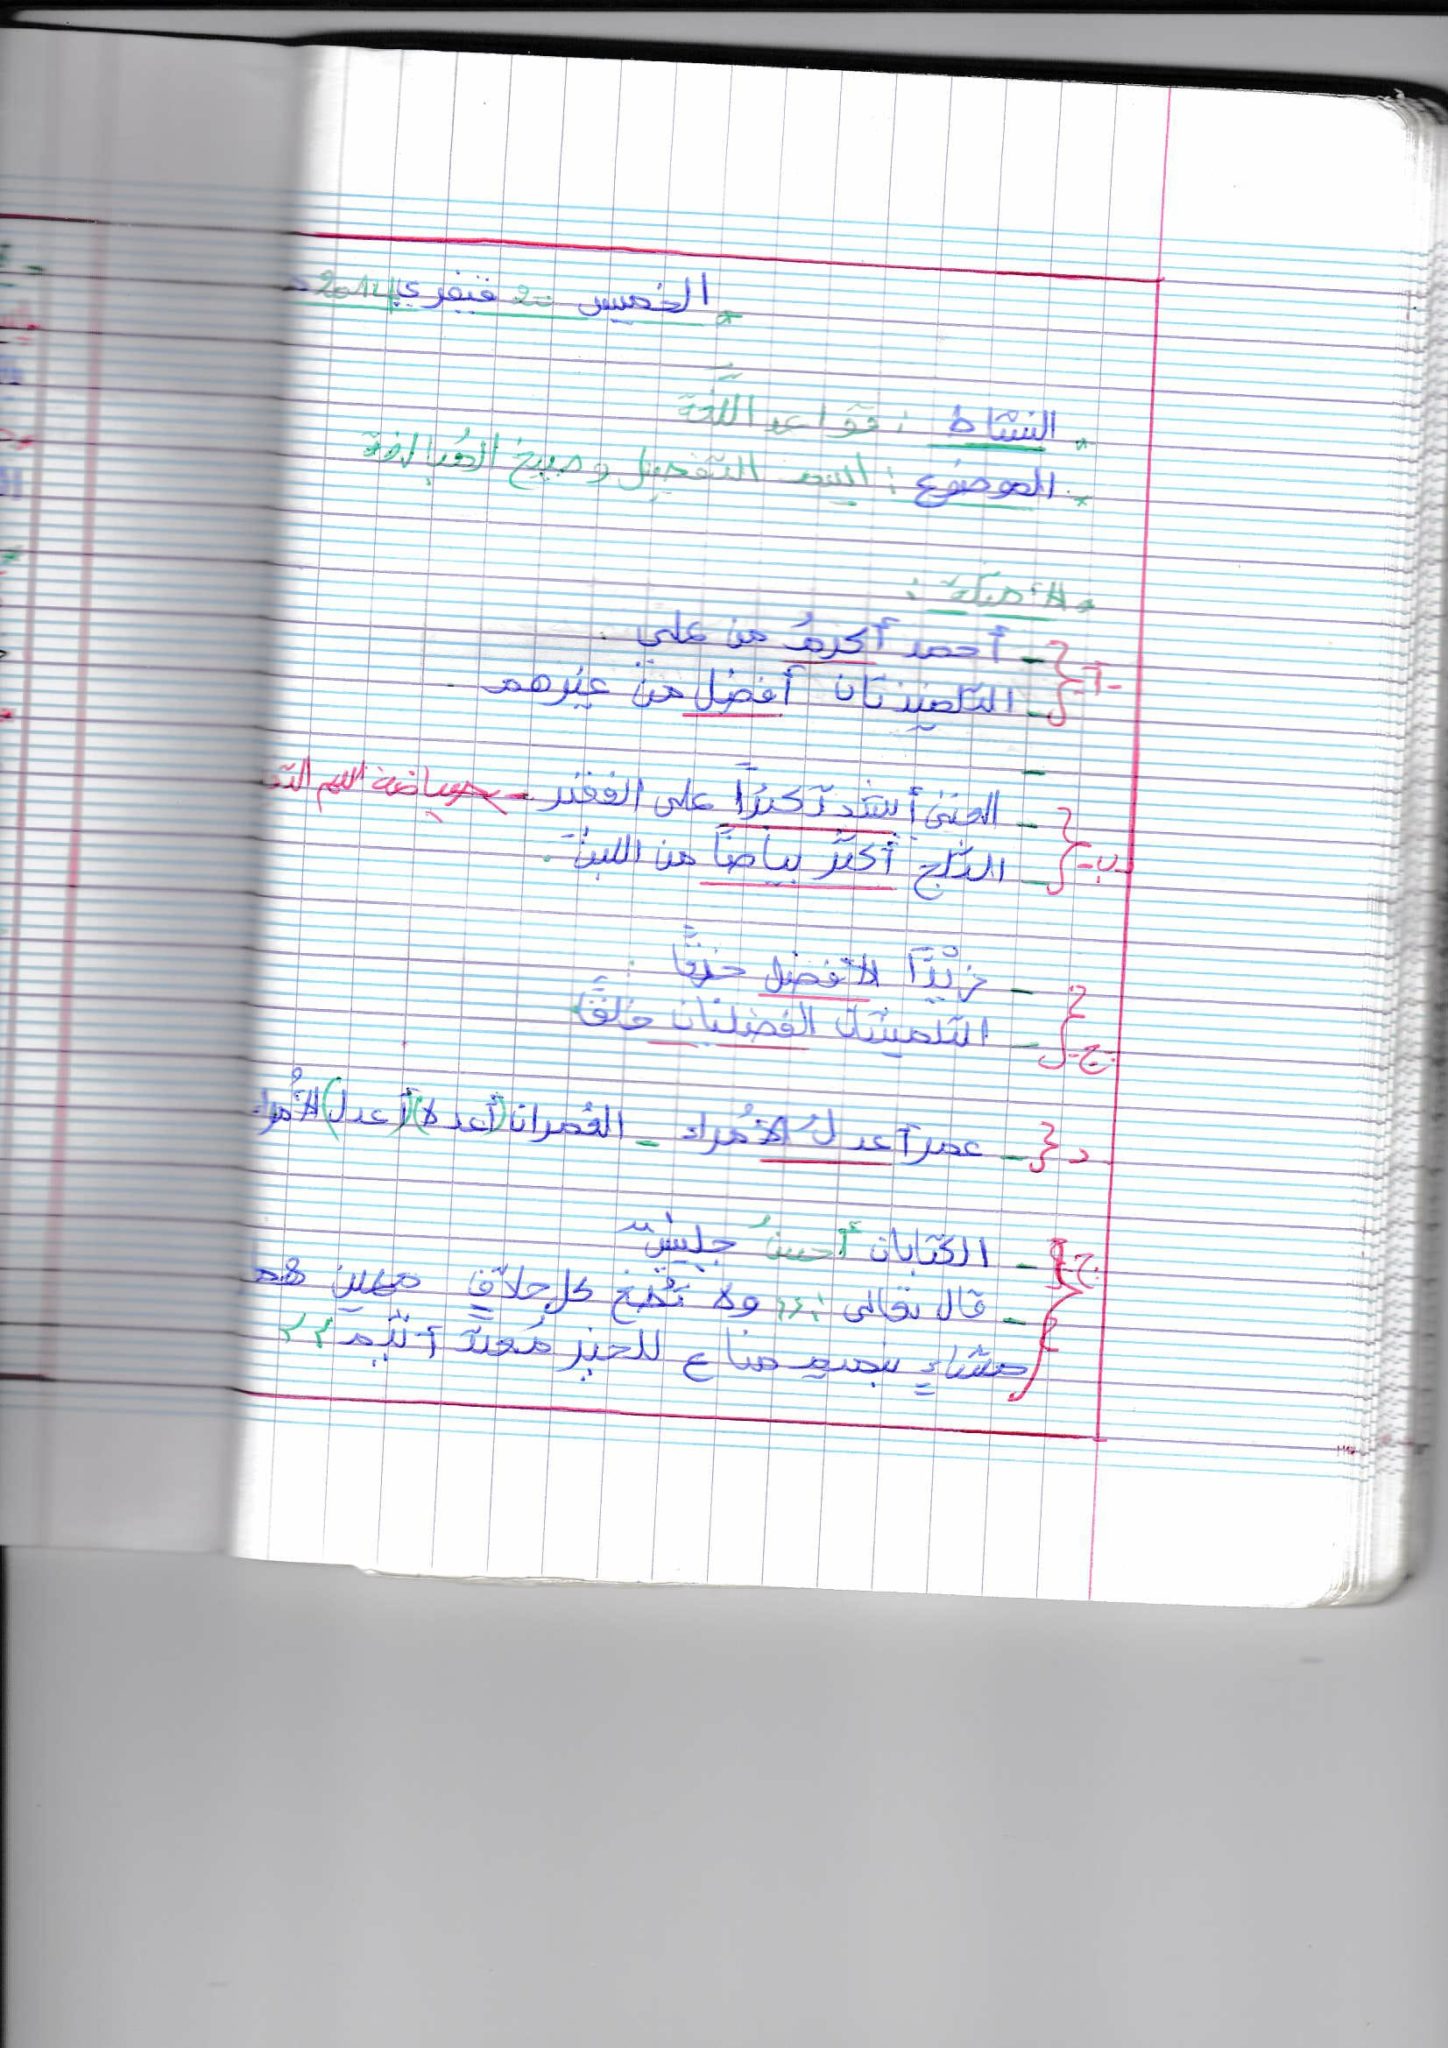 * الخميس 20 فيفري 2014م
* النشاط : قواعد اللّغة
* الموضوع : إسم التفضيل و صيغ المُبالغة
* الأمثلة :
أ - أحمد أكرمُ من علي .
- التّلميذتان أفضل من غيرهم .
ب - الغنيّ أشد تكبّرًا على الفقير
- الثّلج أكثر بياضًا من اللبن .
ج - الأفضل
- الفضليان خلقًا
د - عمر أعدلُ الأمراء - العُمران (أعدلا) (أعدل) الأمراء
- الكتابان أحسنُ جليسٌ
- قال تعالى : ولا تُطع كل حلاّفٍ مهين هماز
مشاءٍ بنميم مناع للخير مُعتدٍ أثيم